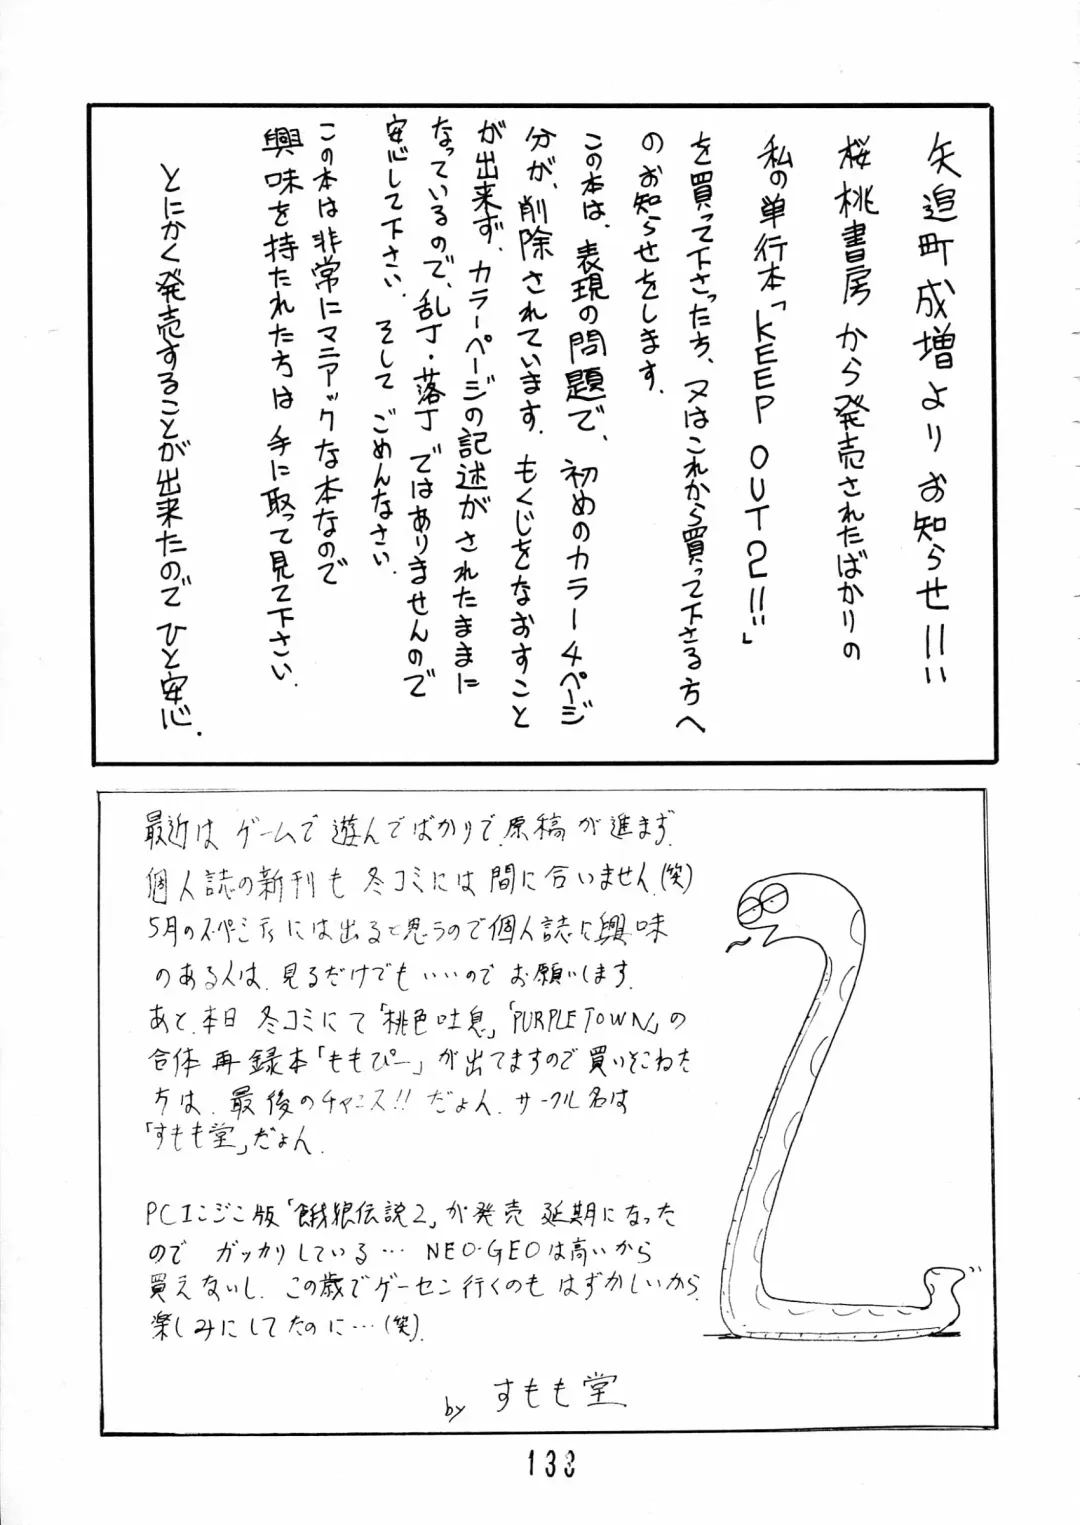 矢追町成増よりお知らせ!!!
桜桃書房から発売されたばかりの
私の単行本「KEEP OUT2!!」
を買って下さったち、又はこれから買って下さる方へ
のお知らせをします.
この本は、表現の問題で、初めのカラー4ページ
分が、削除されています. もくじをなおすこと
が出来ず、カラーページの記述がされたままに
なっているので、乱丁・落丁ではありませんので
安心して下さい. そしてごめんなさい.
この本は非常にマニアックな本なので
興味を持たれた方は手に取って見て下さい.
とにかく発売することが出来たのでひと安心.
最近はゲームで遊んでばかりで.原稿が進まず.
個人誌の新刊も冬コミには間に合いません.(笑)
5月のスペシティには出ると思うので個人誌に興味
のある人は.見るだけでもいいのでお願いします.
あと.本日冬コミにて「桃色吐息」「PURPLE TOWN」の
合体再録本「ももぴー」が出てますので買いそこねた
方は.最後のチャンス!!だよん.サークル名は
「すもも堂」だよん.
PCエンジン版「餓狼伝説2」が発売延期になった
のでガッカリしている… NEO・GEOは高いから
買えないし.この歳でゲーセン行くのもはずかしいから
楽しみにしてたのに…(笑).
by すもも堂
133